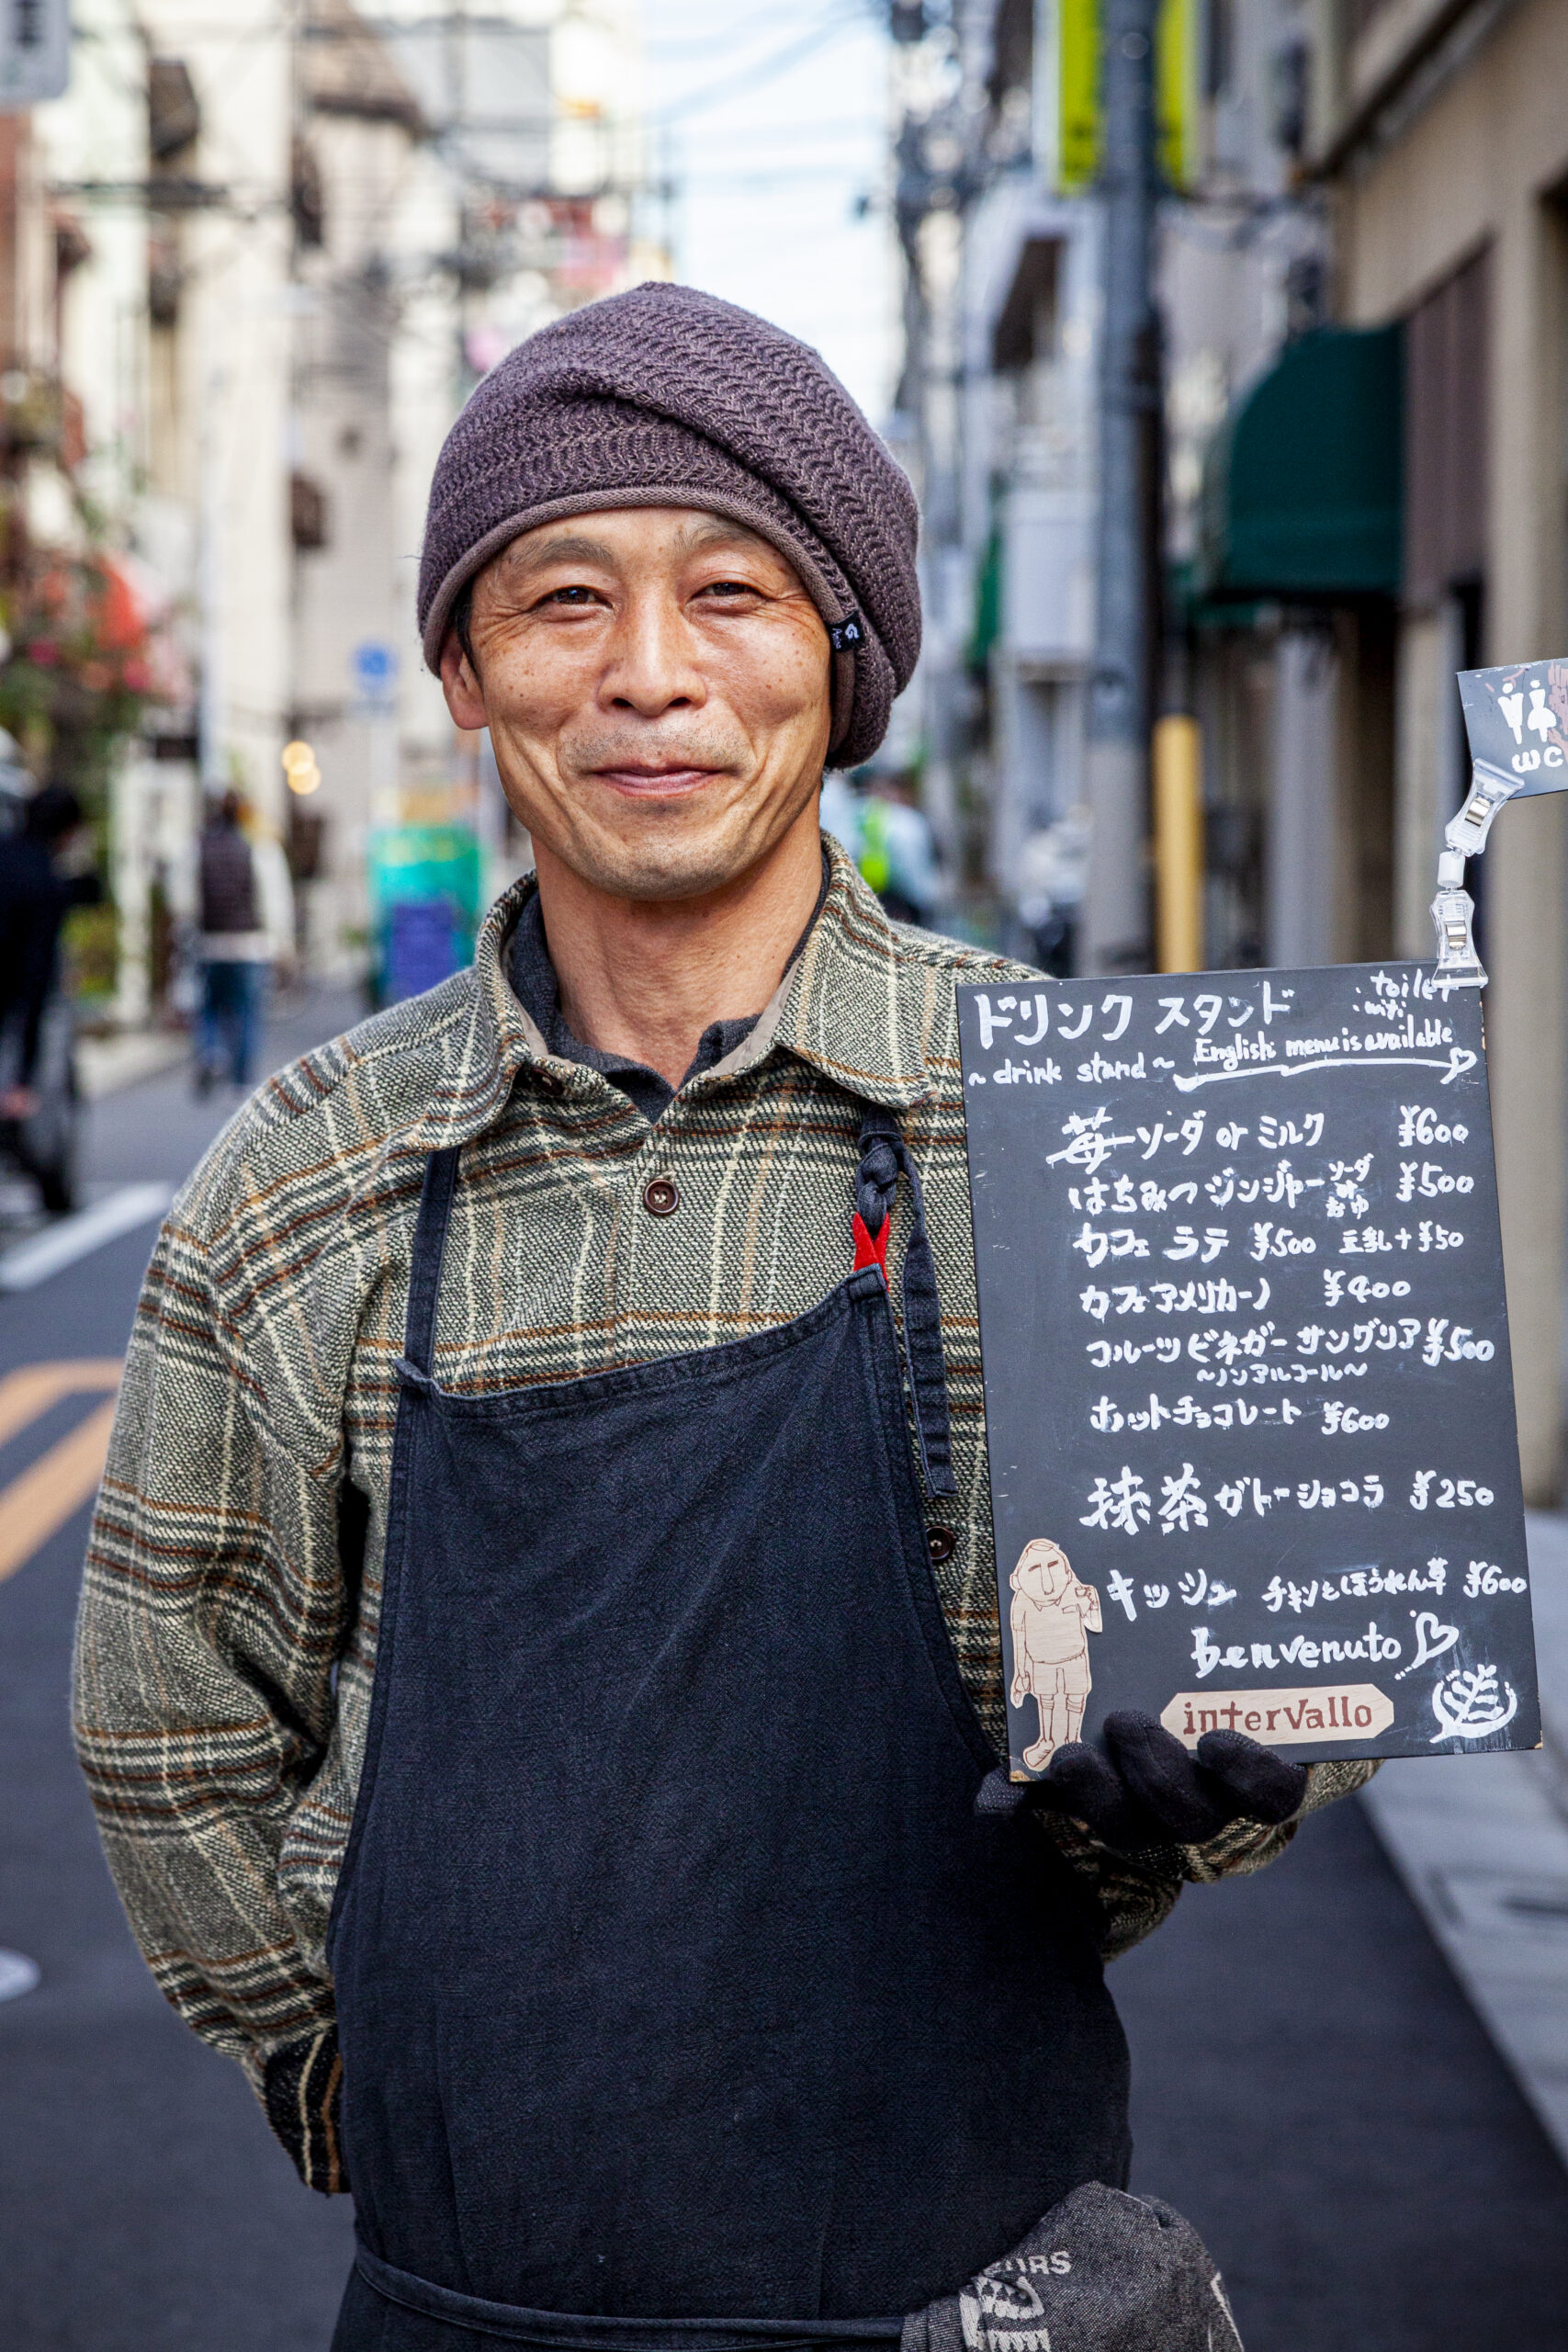 WC
ドリンク スタンド
toilet
~ drink stand ~
English menu is available
苺ソーダ or ミルク ¥600
はちみつジンジャー ソーダ or お湯 ¥500
カフェ ラテ ¥500 豆乳+¥50
カフェアメリカーノ ¥400
フルーツビネガーサングリア ¥500
~ノンアルコール~
ホットチョコレート ¥600
抹茶ガトーショコラ ¥250
キッシュ チキンとほうれん草 ¥600
benvenuto
intervallo